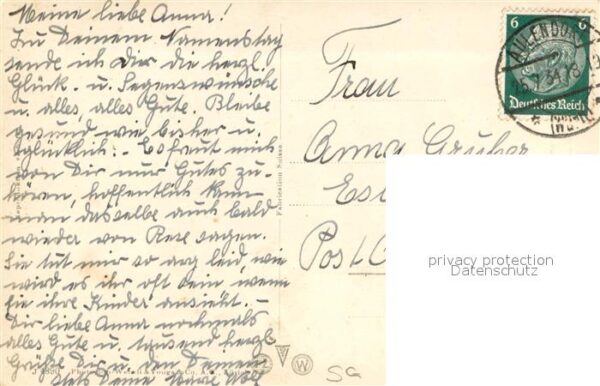 Meine liebe Anna!
Zu Deinem Namenstag
sende ich Dir die herzl.
Glück- u. Segenswünsche
u. alles, alles Gute. Bleibe
gesund wie bisher u.
glücklich. – Es freut mich
von Dir nur Gutes zu
hören, hoffentlich kann
man dasselbe auch bald
wieder von Rese sagen.
Sie tut mir so arg leid, wie
wird es ihr oft sein, wenn
sie ihre Kinder ansieht. –
Dir liebe Anna nochmals
alles Gute u. tausend herzl.
Grüße Dir u. den Deinen
stets Deine
Frau
Anna Gruber
Post
6 6
AULENDORF
Deutsches Reich
Fabrication Suisse
privacy protection
Datenschutz
W